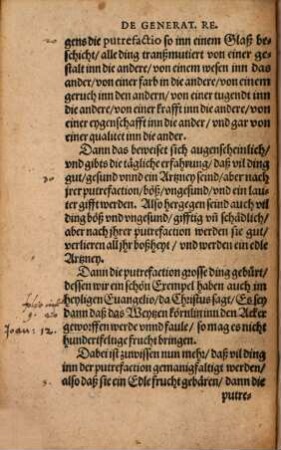 DE GENERAT. RE.
gens die putrefactio so inn einem Glaß be-
schicht/ alle ding tranßmutiert von einer ge-
stalt inn die andere/ von einem wesen inn das
ander/ von einer farb in die andere/ von einem
geruch inn den andern/ von einer tugendt inn
die andere/ von einer krafft inn die andere/ von
einer eygenschafft inn die ander/ vnd gar von
einer qualitet inn die ander.
Dann das beweiset sich augenscheinlich/
vnd gibts die tägliche erfahrung/ daß vil ding
30
gut/ gesund vnnd ein Artzney seind/ aber nach
jrer putrefaction/ böß/ vngesund/ vnd ein lau-
ter gifft werden. Also hergegen seind auch vil
ding böß vnd vngesund/ gifftig vn̄ schädlich/
aber nach jhrer putrefaction werden sie gut/
verlieren all jhr boßheyt/ vnd werden ein edle
Artzney.
Dann die putrefaction grosse ding gebürt/
dessen wir ein schön Exempel haben auch im
heyligen Euangelio/ da Christus sagt/ Es sey
dann daß das Weytzen körnlin inn den Acker
geworffen werde vnnd faule/ so mag es nicht
hundertfeltige frucht bringen.
Joan: 12.
Dabei ist zuwissen nun mehr/ daß vil ding
inn der putrefaction gemanigfaltigt werden/
also daß sie ein Edle frucht gebären/ dann die
putre-